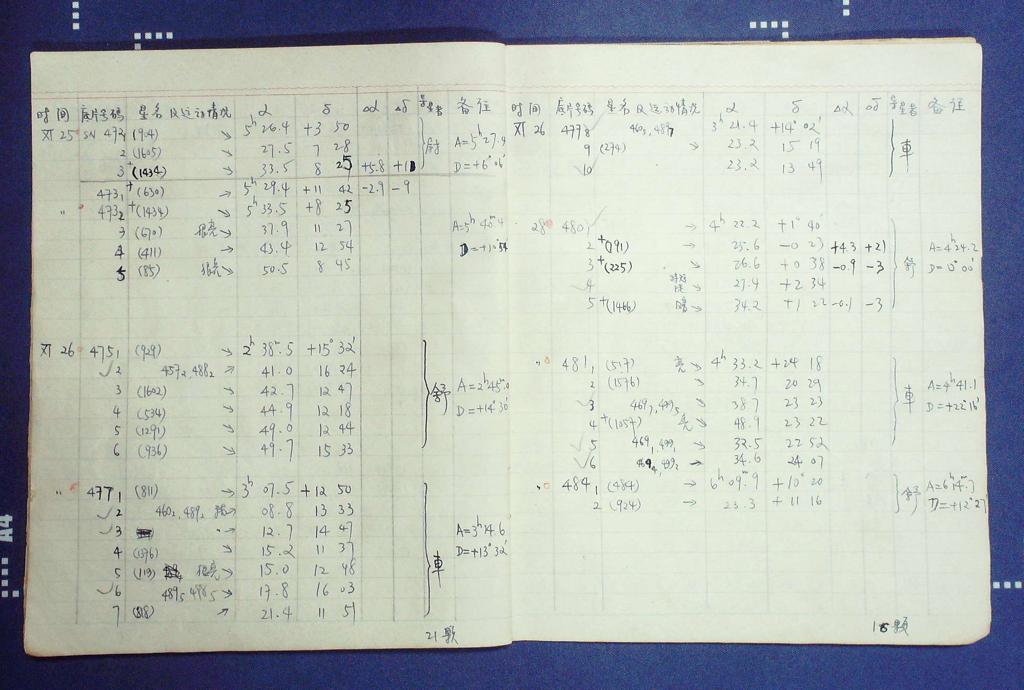 时间 底片号码 星名及运动情况 α δ Δα Δδ 备注
XI 25 SN 473₁ (904) ↘ 5ʰ 26.4 +3 50
2 (1605) 27.5 7 28 A=5ʰ27.4
3 +(1434) ↘ 33.5 8 25 +5.8 D=+6°06'
473₁ +(630) → 5ʰ 29.4 +11 42 -2.9 -9
" 473₂ +(1434) → 5ʰ 33.5 +8 25
3 (670) 很亮 → 37.9 11 27
4 (411) → 43.4 12 54
5 (85) 很亮 50.5 8 45
XI 26 475₁ (929) ↘ 2ʰ 38.5 +15° 32'
✓2 457₂, 488₂ ↘ 41.0 16 24
3 (1602) ↘ 42.7 12 47 舒 A=2ʰ45.0
4 (534) ↘ 44.9 12 18 D=+14°30'
5 (1291) ↘ 49.0 12 44
6 (936) ↘ 49.7 15 33
" 477₁ (811) ↘ 3ʰ 07.5 +12 50
✓2 460₂, 489₂ 08.8 13 33
✓3 12.7 14 47 A=3ʰ14.6
4 (1376) ↘ 15.2 11 37 車 D=+13°32'
5 (113) 很亮 15.0 12 48
✓6 489₅ → 17.8 16 03
7 21.4 11 51
21颗
时间 底片号码 星名及运动情况 α δ Δα Δδ 备注
XI 26 477₈ 460₃, 489₇ 3ʰ 21.4 +14° 02'
9 (274) ↘ 23.2 15 19 車
10 23.2 13 49
28 480₁ → 4ʰ 22.2 +1° 40'
2 +(191) → 25.6 -0 23 +4.3 +21 A=4ʰ24.2
3 +(225) → 26.6 +0 38 -0.9 -3 舒 D=0°00'
4 27.4 +2 34
5 +(1466) ↘ 34.2 +1 22 -0.1 -3
" 481₁ (517) 亮 ↘ 4ʰ 33.2 +24 18
2 (1576) ↘ 34.7 20 29 A=4ʰ41.1
✓3 469₃, 499₅ ↘ 38.7 23 23 車 D=+22°16'
4 +(1057) 亮 ↘ 48.9 23 22
✓5 469₁, 499₁ ↘ 32.5 22 52
✓6 499₂ → 34.6 24 07
" 484₁ (484) → 6ʰ 09.9 +10° 20 舒 A=6ʰ14.7
2 (924) → 23.3 +11 16 D=+12°27
颗
A4